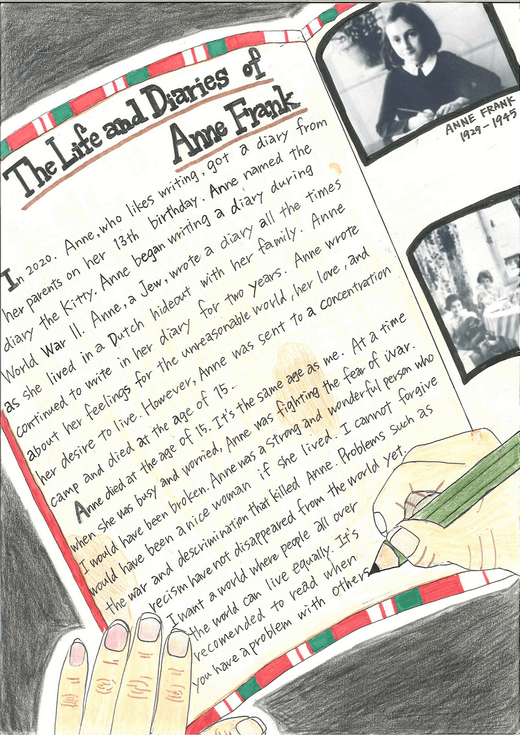 The Life and Diaries of
Anne Frank
In 2020. Anne, who likes writing, got a diary from
her parents on her 13th birthday. Anne named the
diary the Kitty. Anne began writing a diary during
World War II. Anne, a Jew, wrote a diary all the times
as she lived in a Dutch hideout with her family. Anne
continued to write in her diary for two years. Anne wrote
about her feelings for the unreasonable world, her love, and
her desire to live. However, Anne was sent to a concentration
camp and died at the age of 15.
Anne died at the age of 15. It's the same age as me. At a time
when she was busy and worried, Anne was fighting the fear of war.
I would have been broken. Anne was a strong and wonderful person who
would have been a nice woman if she lived. I cannot forgive
the war and descrimination that killed Anne. Problems such as
recism have not disappeared from the world yet.
I want a world where people all over
the world can live equally. It's
recomended to read when
you have a problem with others
ANNE FRANK
1929-1945